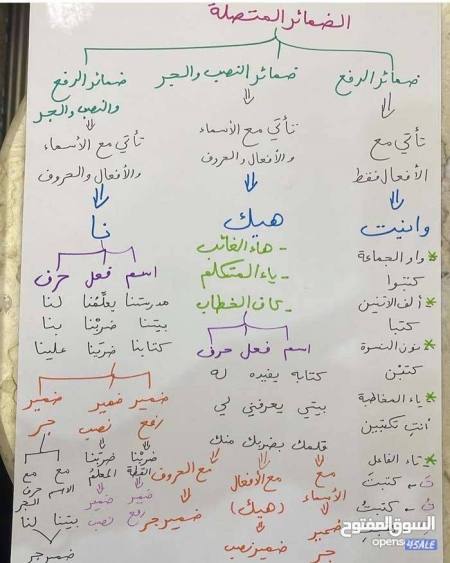 الضمائر المتصلة
ضمائر الرفع
تأتي مع
الأفعال فقط
وانيت
* واو الجماعة
كتبوا
* ألف الاثنين
كتبا
* نون النسوة
كتبْن
* ياء المخاطبة
أنتِ تكتبين
* تاء الفاعل
تَ - كتبتَ
تِ - كتبتِ
ضمائر النصب والجر
تأتي مع الأسماء
والأفعال والحروف
هيك
- هاء الغائب
- ياء المتكلم
- كاف الخطاب
اسم فعل حرف
كتابه يفيده له
بيتي يعرفني لي
قلمك يضربك منك
مع الأسماء
ضمير جر
مع الأفعال
(هيك)
ضمير نصب
مع الحروف
ضمير جر
ضمائر الرفع
والنصب والجر
تأتي مع الأسماء
والأفعال والحروف
نا
اسم فعل حرف
مدرستنا يعلّمُنا لنا
بيتنا ضربْنا بنا
كتابنا ضربَنا علينا
ضمير رفع
ضربْنا
القطة
ضمير رفع
ضمير نصب
ضربَنا
المعلمُ
ضمير نصب
ضمير جر
مع الاسم
بيتنا
مع حرف الجر
لنا
ضمير جر
السوق المفتوح
opensooq
4SALE